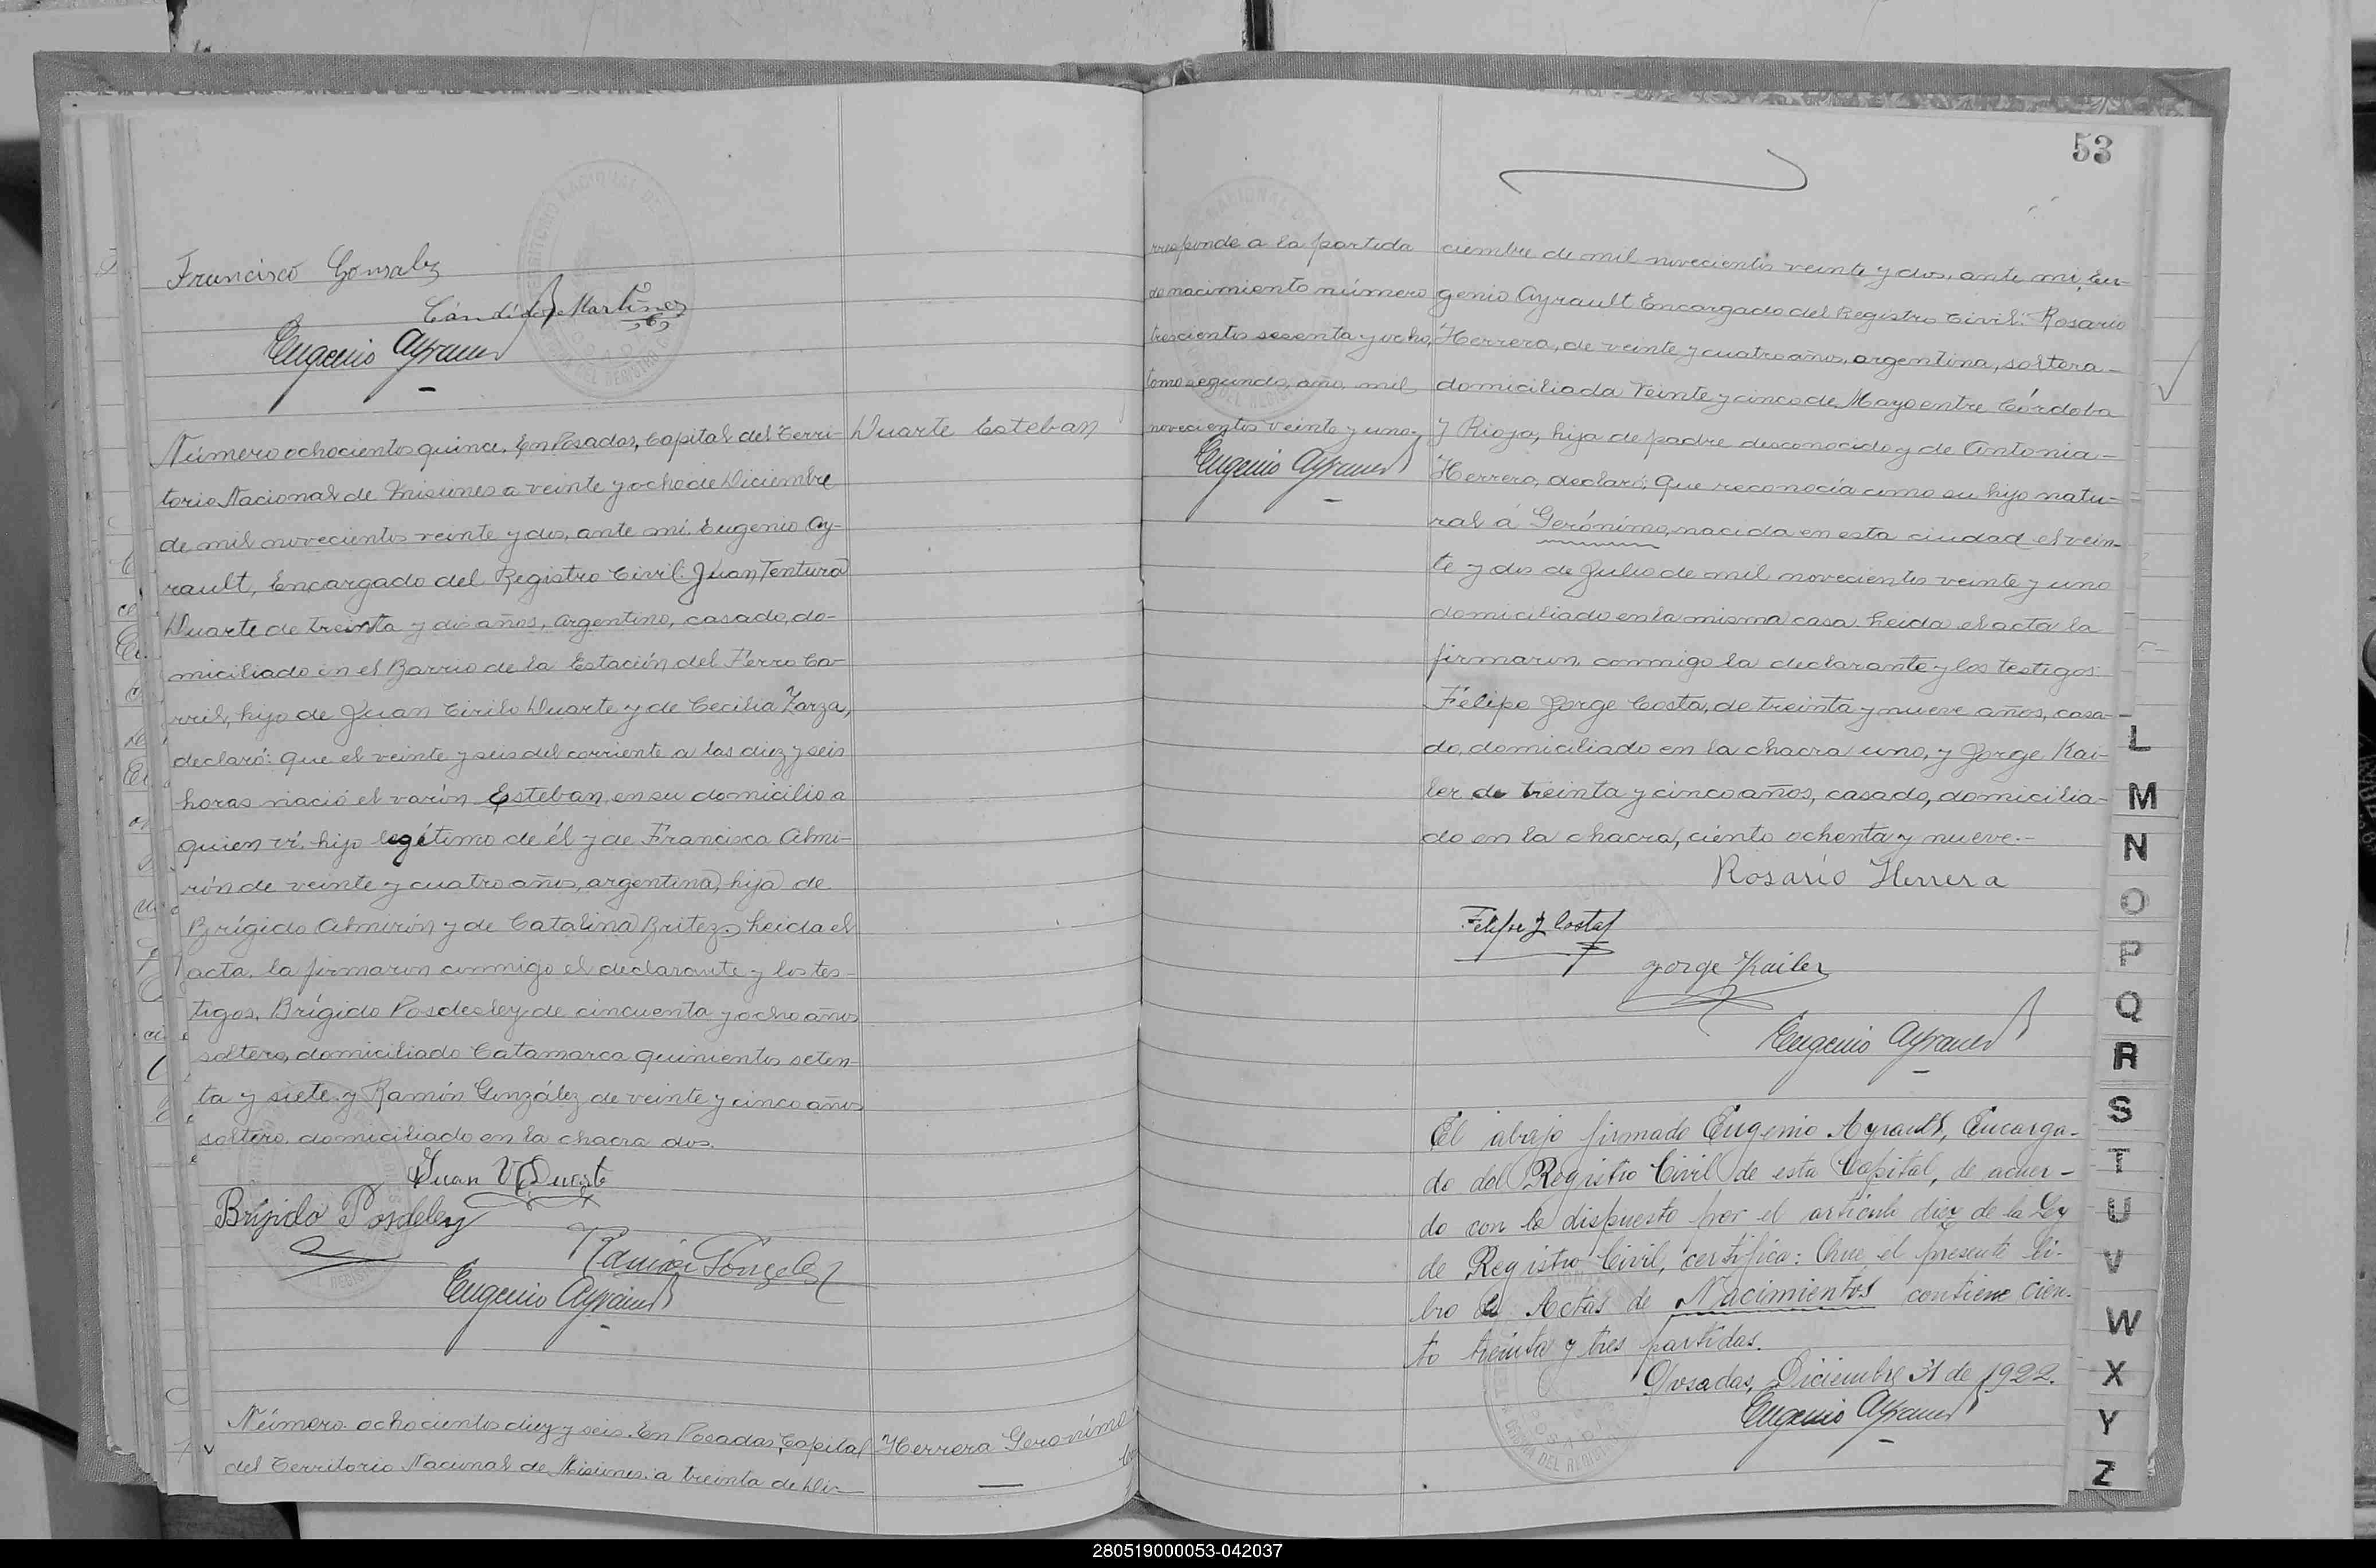 Francisco Gonzalez
Cándido Martínez
Eugenio Ayrault
Número ochocientos quince. En Posadas, Capital del Terri-
Duarte Esteban
torio Nacional de Misiones a veinte y ocho de Diciembre
de mil novecientos veinte y dos, ante mí. Eugenio Ay-
rault, Encargado del Registro Civil: Juan Ventura
Duarte de treinta y dos años, argentino, casado, do-
miciliado en el Barrio de la Estación del Ferro Ca-
rril, hijo de Juan Cirilo Duarte y de Cecilia Zarza,
declaró: que el veinte y seis del corriente a las diez y seis
horas nació el varón Esteban en su domicilio a
quien ví, hijo legítimo de él y de Francisca Almi-
rón de veinte y cuatro años, argentina, hija de
Brígido Almirón y de Catalina Britez. Leida el
acta, la firmaron conmigo el declarante y los tes-
tigos, Brígido Posdeley de cincuenta y ocho años
soltero, domiciliado Catamarca quinientos seten-
ta y siete y Ramón González de veinte y cinco años
soltero, domiciliado en la chacra dos.
Juan V Duarte
Brígido Posdeley
Ramón Gonzalez
Eugenio Ayrault
Número ochocientos diez y seis. En Posadas, Capital
Herrera Gerónimo
del Territorio Nacional de Misiones a treinta de Di-
53
rresponde a la partida
de nacimiento número
trescientos sesenta y ocho,
tomo segundo, año mil
novecientos veinte y uno.
Eugenio Ayrault
ciembre de mil novecientos veinte y dos, ante mí, Eu-
genio Ayrault Encargado del Registro Civil: Rosario
Herrera, de veinte y cuatro años, argentina, soltera
domiciliada Veinte y cinco de Mayo entre Córdoba
y Rioja, hija de padre desconocido y de Antonia
Herrera, declaró: Que reconocía como su hijo natu-
ral á Gerónimo, nacida en esta ciudad el vein-
te y dos de Julio de mil novecientos veinte y uno
domiciliado en la misma casa. Leida el acta la
firmaron conmigo la declarante y los testigos:
Felipe Jorge Costa, de treinta y nueve años, casa-
do, domiciliado en la chacra uno, y Jorge Kai-
ler de treinta y cinco años, casado, domicilia-
do en la chacra, ciento ochenta y nueve.-
Rosario Herrera
Felipe J Costa
Jorge Kailer
Eugenio Ayrault
El abajo firmado Eugenio Ayrault, Encarga-
do del Registro Civil de esta Capital, de acuer-
do con lo dispuesto por el artículo diez de la Ley
de Registro Civil, certifica: Que el presente li-
bro de Actas de Nacimientos contiene cien-
to treinta y tres partidas.
Posadas, Diciembre 31 de 1922.
Eugenio Ayrault
L
M
N
O
P
Q
R
S
T
U
V
W
X
Y
Z
280519000053-042037